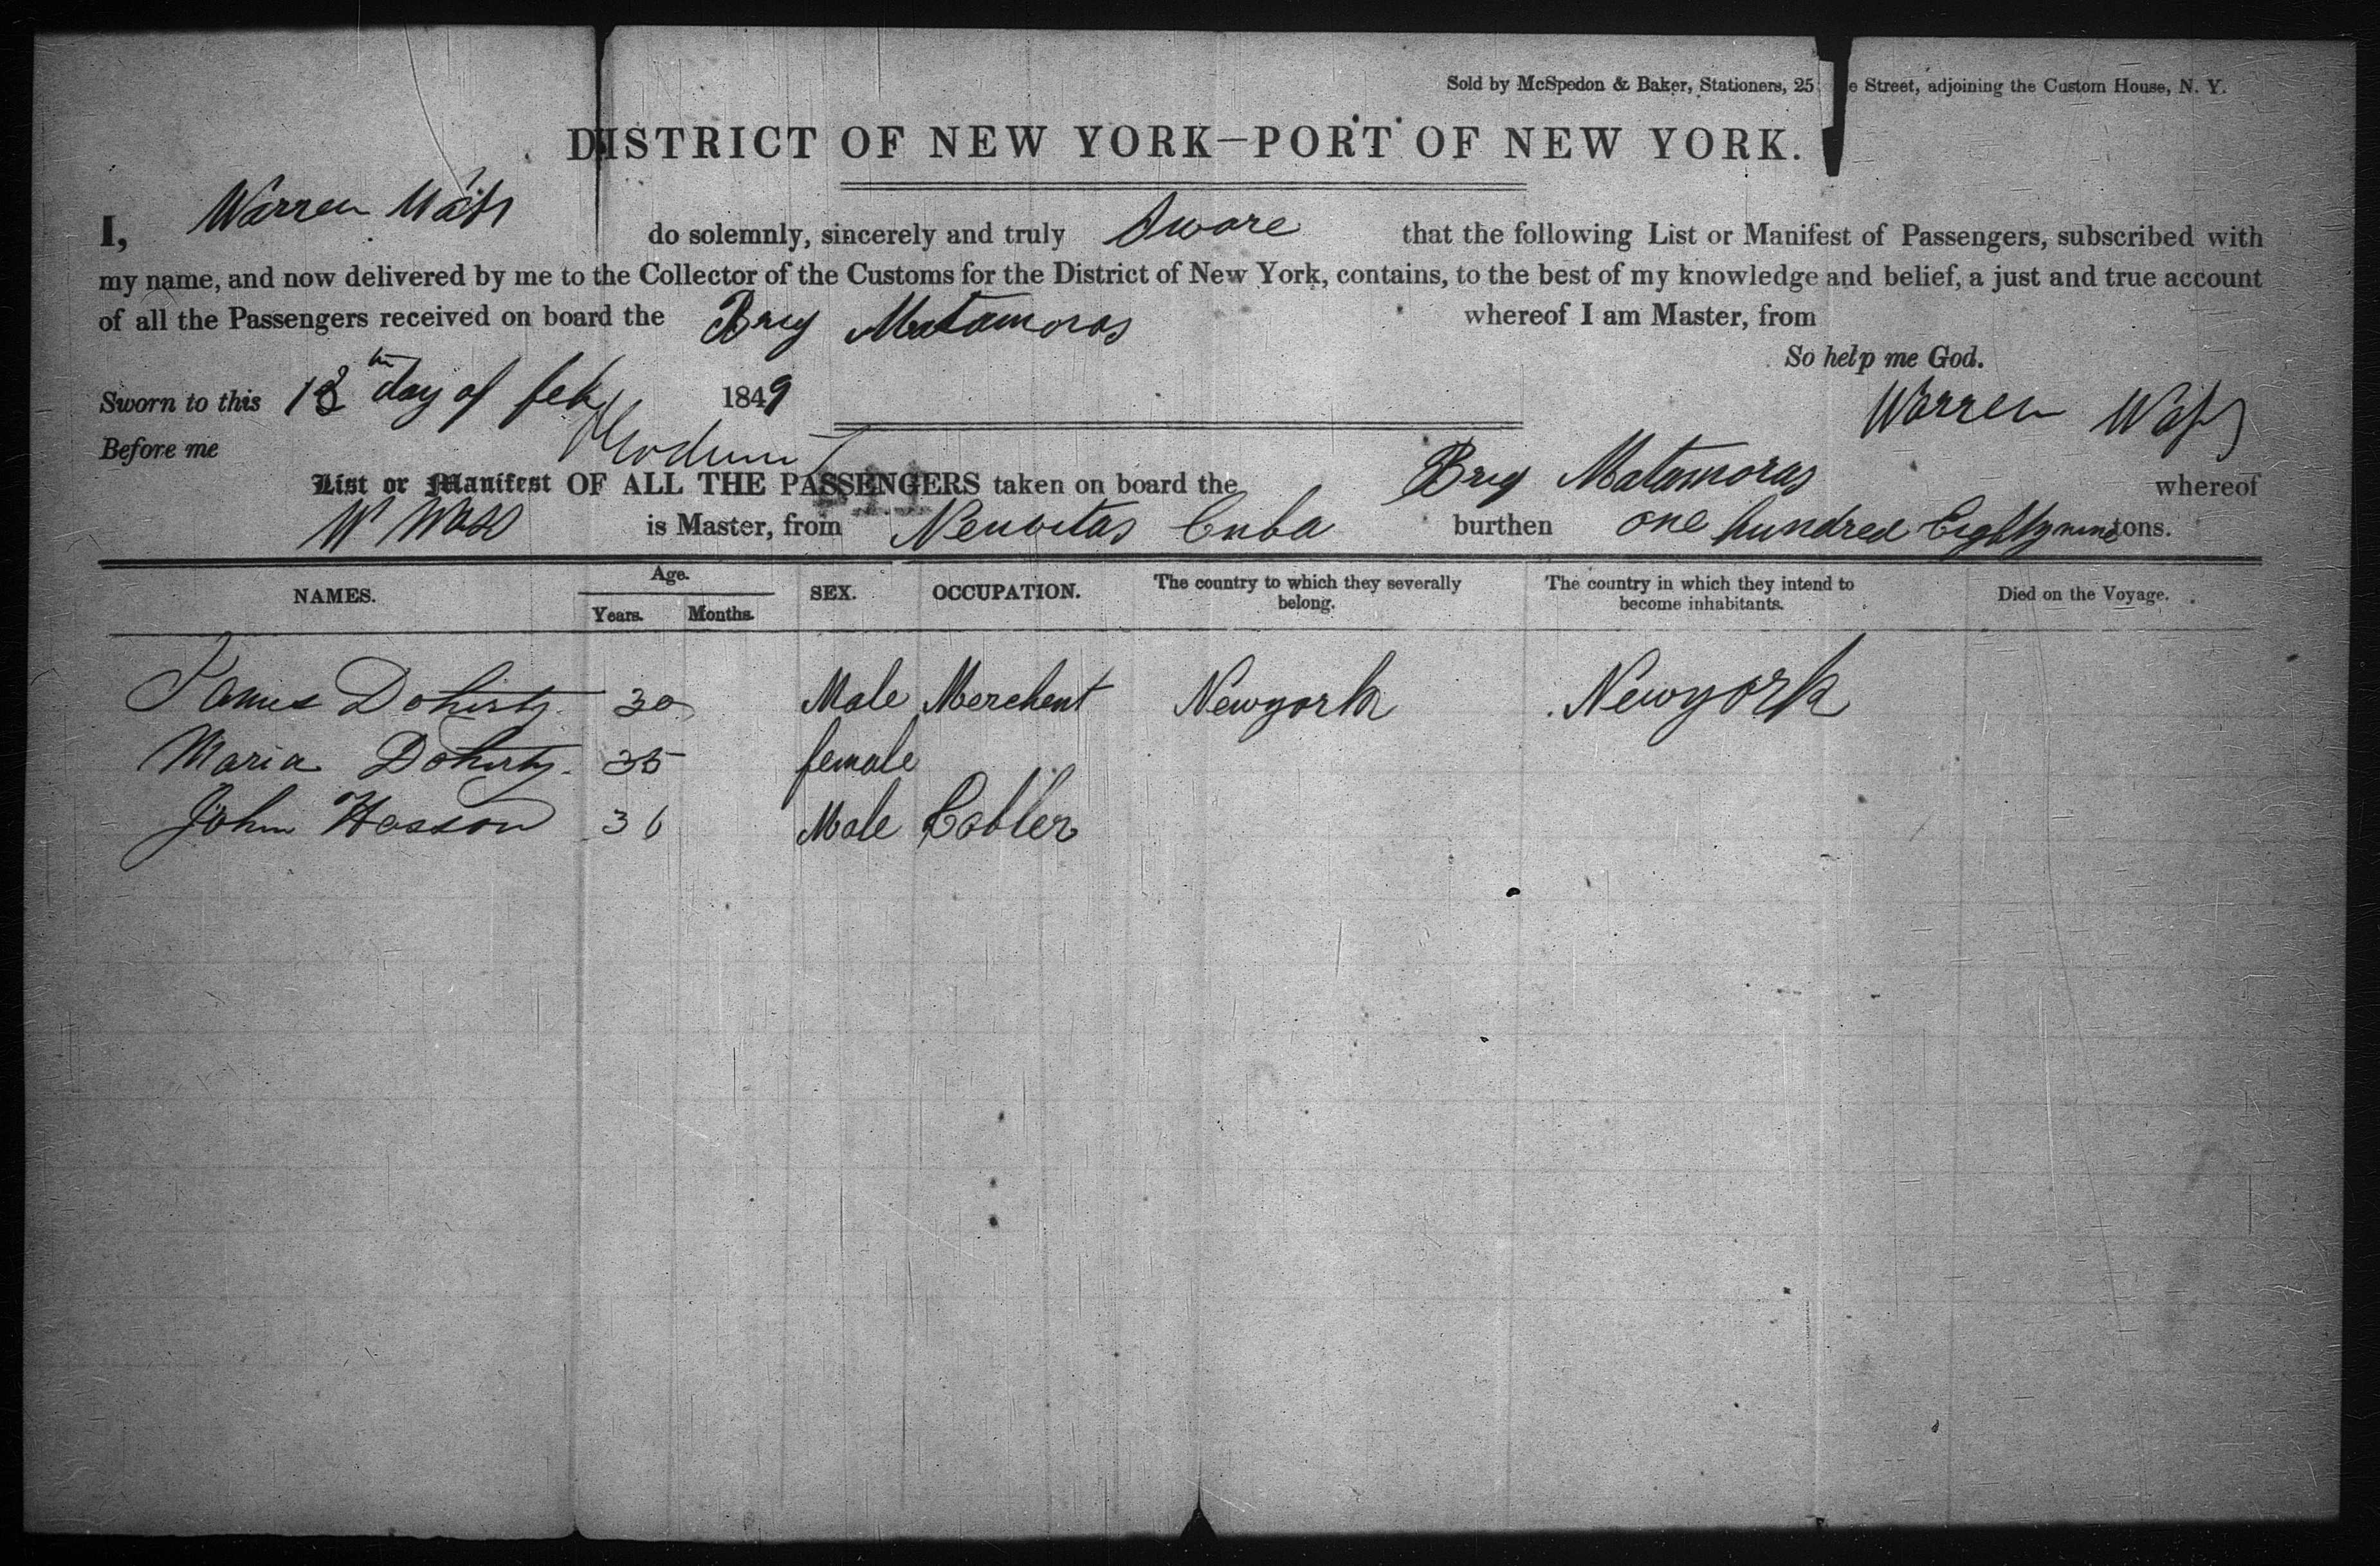 Sold by McSpedon & Baker, Stationers, 25 e Street, adjoining the Custom House, N. Y.
DISTRICT OF NEW YORK—PORT OF NEW YORK.
I, Warren Wass do solemnly, sincerely and truly Sware that the following List or Manifest of Passengers, subscribed with
my name, and now delivered by me to the Collector of the Customs for the District of New York, contains, to the best of my knowledge and belief, a just and true account
of all the Passengers received on board the Brig Matamoras whereof I am Master, from
So help me God.
Sworn to this day of feb 1849
Warren Wass
Before me
List or Manifest OF ALL THE PASSENGERS taken on board the Brig Matamoras whereof
W Wass is Master, from Neuvitas Cuba burthen one hundred Eighty nine tons.
NAMES. Age. SEX. OCCUPATION. The country to which they severally belong. The country in which they intend to become inhabitants. Died on the Voyage.
Years. Months.
James Doherty 30 Male Merchent Newyork Newyork
Maria Doherty 35 female
John Hasson 36 Male Cobler